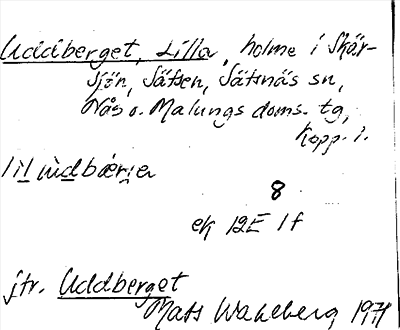 Uddberget, Lilla, holme i Skär-
sjön, Sätsen, Säfsnäs sn,
Nås o. Malungs doms. tg,
Kopp. l.
8
ek 12E 1f
jfr. Uddberget
Mats Wahlberg 1971